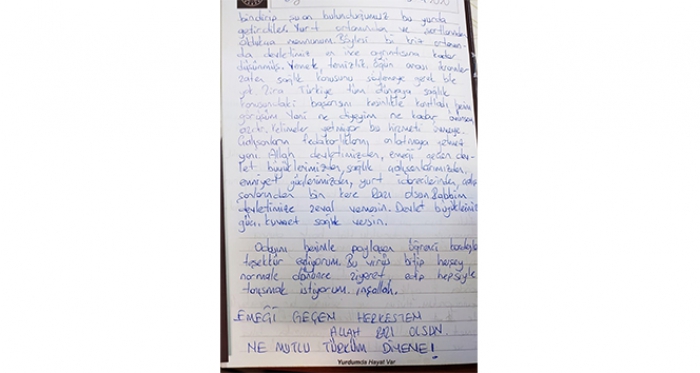 bindirip şuan bulunduğumuz bu yurda
getirdiler. Yurt ortamından ve şartlarından
oldukça memnunum. Böylesi bir kriz ortamın-
da devletimiz en ince ayrıntısına kadar
düşünmüş. Yemek, temizlik, öğün arası ikramlar
zaten sağlık konusunu söylemeye gerek bile
yok. Zira Türkiye tüm dünyaya sağlık
konusundaki başarısını kesinlikle kanıtladı benim
görüşüm. Yani ne diyeyim ne kadar
azdır. Kelimeler yetmiyor bu hizmeti
Çalışanların fedakarlıklarını anlatmaya yetmiyor
yani. Allah devletimizden, emeği geçen dev-
let büyüklerimizden, sağlık çalışanlarımızdan,
emniyet güçlerimizden, yurt idarecilerinden, çalı-
şanlarından bin kere Razı olsun. Rabbim
devletimize zeval vermesin. Devlet büyüklerimize
güç, kuvvet sağlık versin.
Odasını benimle paylaşan öğrenci kardeşle
teşekkür ediyorum. Bu virüs bitip herşey
normale dönünce ziyaret edip hepsiyle
tanışmak istiyorum. inşallah.
EMEĞİ GEÇEN HERKESTEN
ALLAH RAZI OLSUN.
NE MUTLU TÜRKÜM DİYENE!
Yurdumda Hayat Var